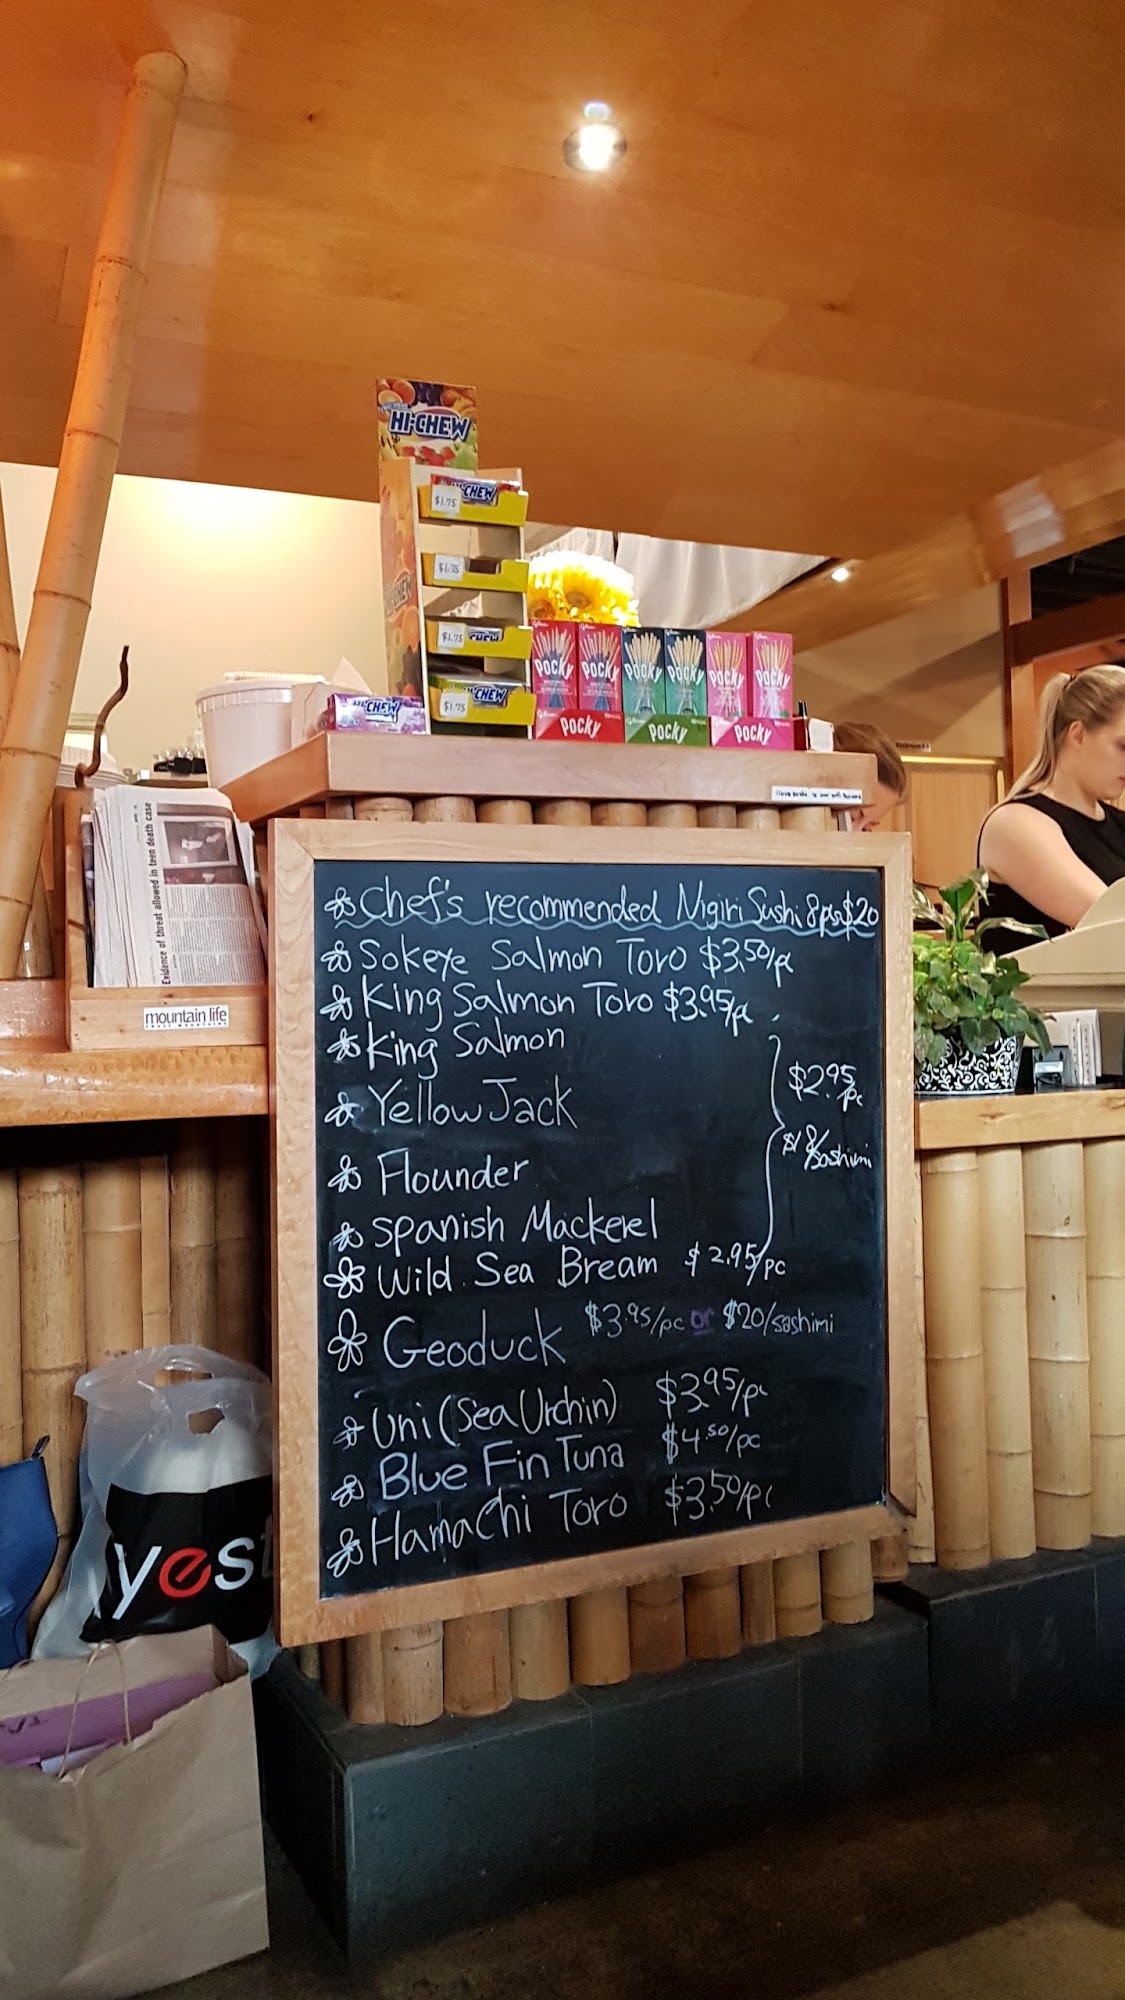 HI-CHEW
HI-CHEW
$1.75
$1.75
$1.75
CHEW
$1.75
HI-CHEW
POCKY POCKY POCKY POCKY POCKY POCKY
POCKY POCKY POCKY
Evidence of threat allowed in teen death case
mountain life
Chef's recommended Nigiri Sushi 8pcs $20
Sokeye Salmon Toro $3.50/pc
King Salmon Toro $3.95/pc
King Salmon
Yellow Jack
Flounder
Spanish Mackerel
$2.95/pc
$18/sashimi
Wild Sea Bream $2.95/pc
Geoduck $3.95/pc or $20/sashimi
Uni (Sea Urchin) $3.95/pc
Blue Fin Tuna $4.50/pc
Hamachi Toro $3.50/pc
yes